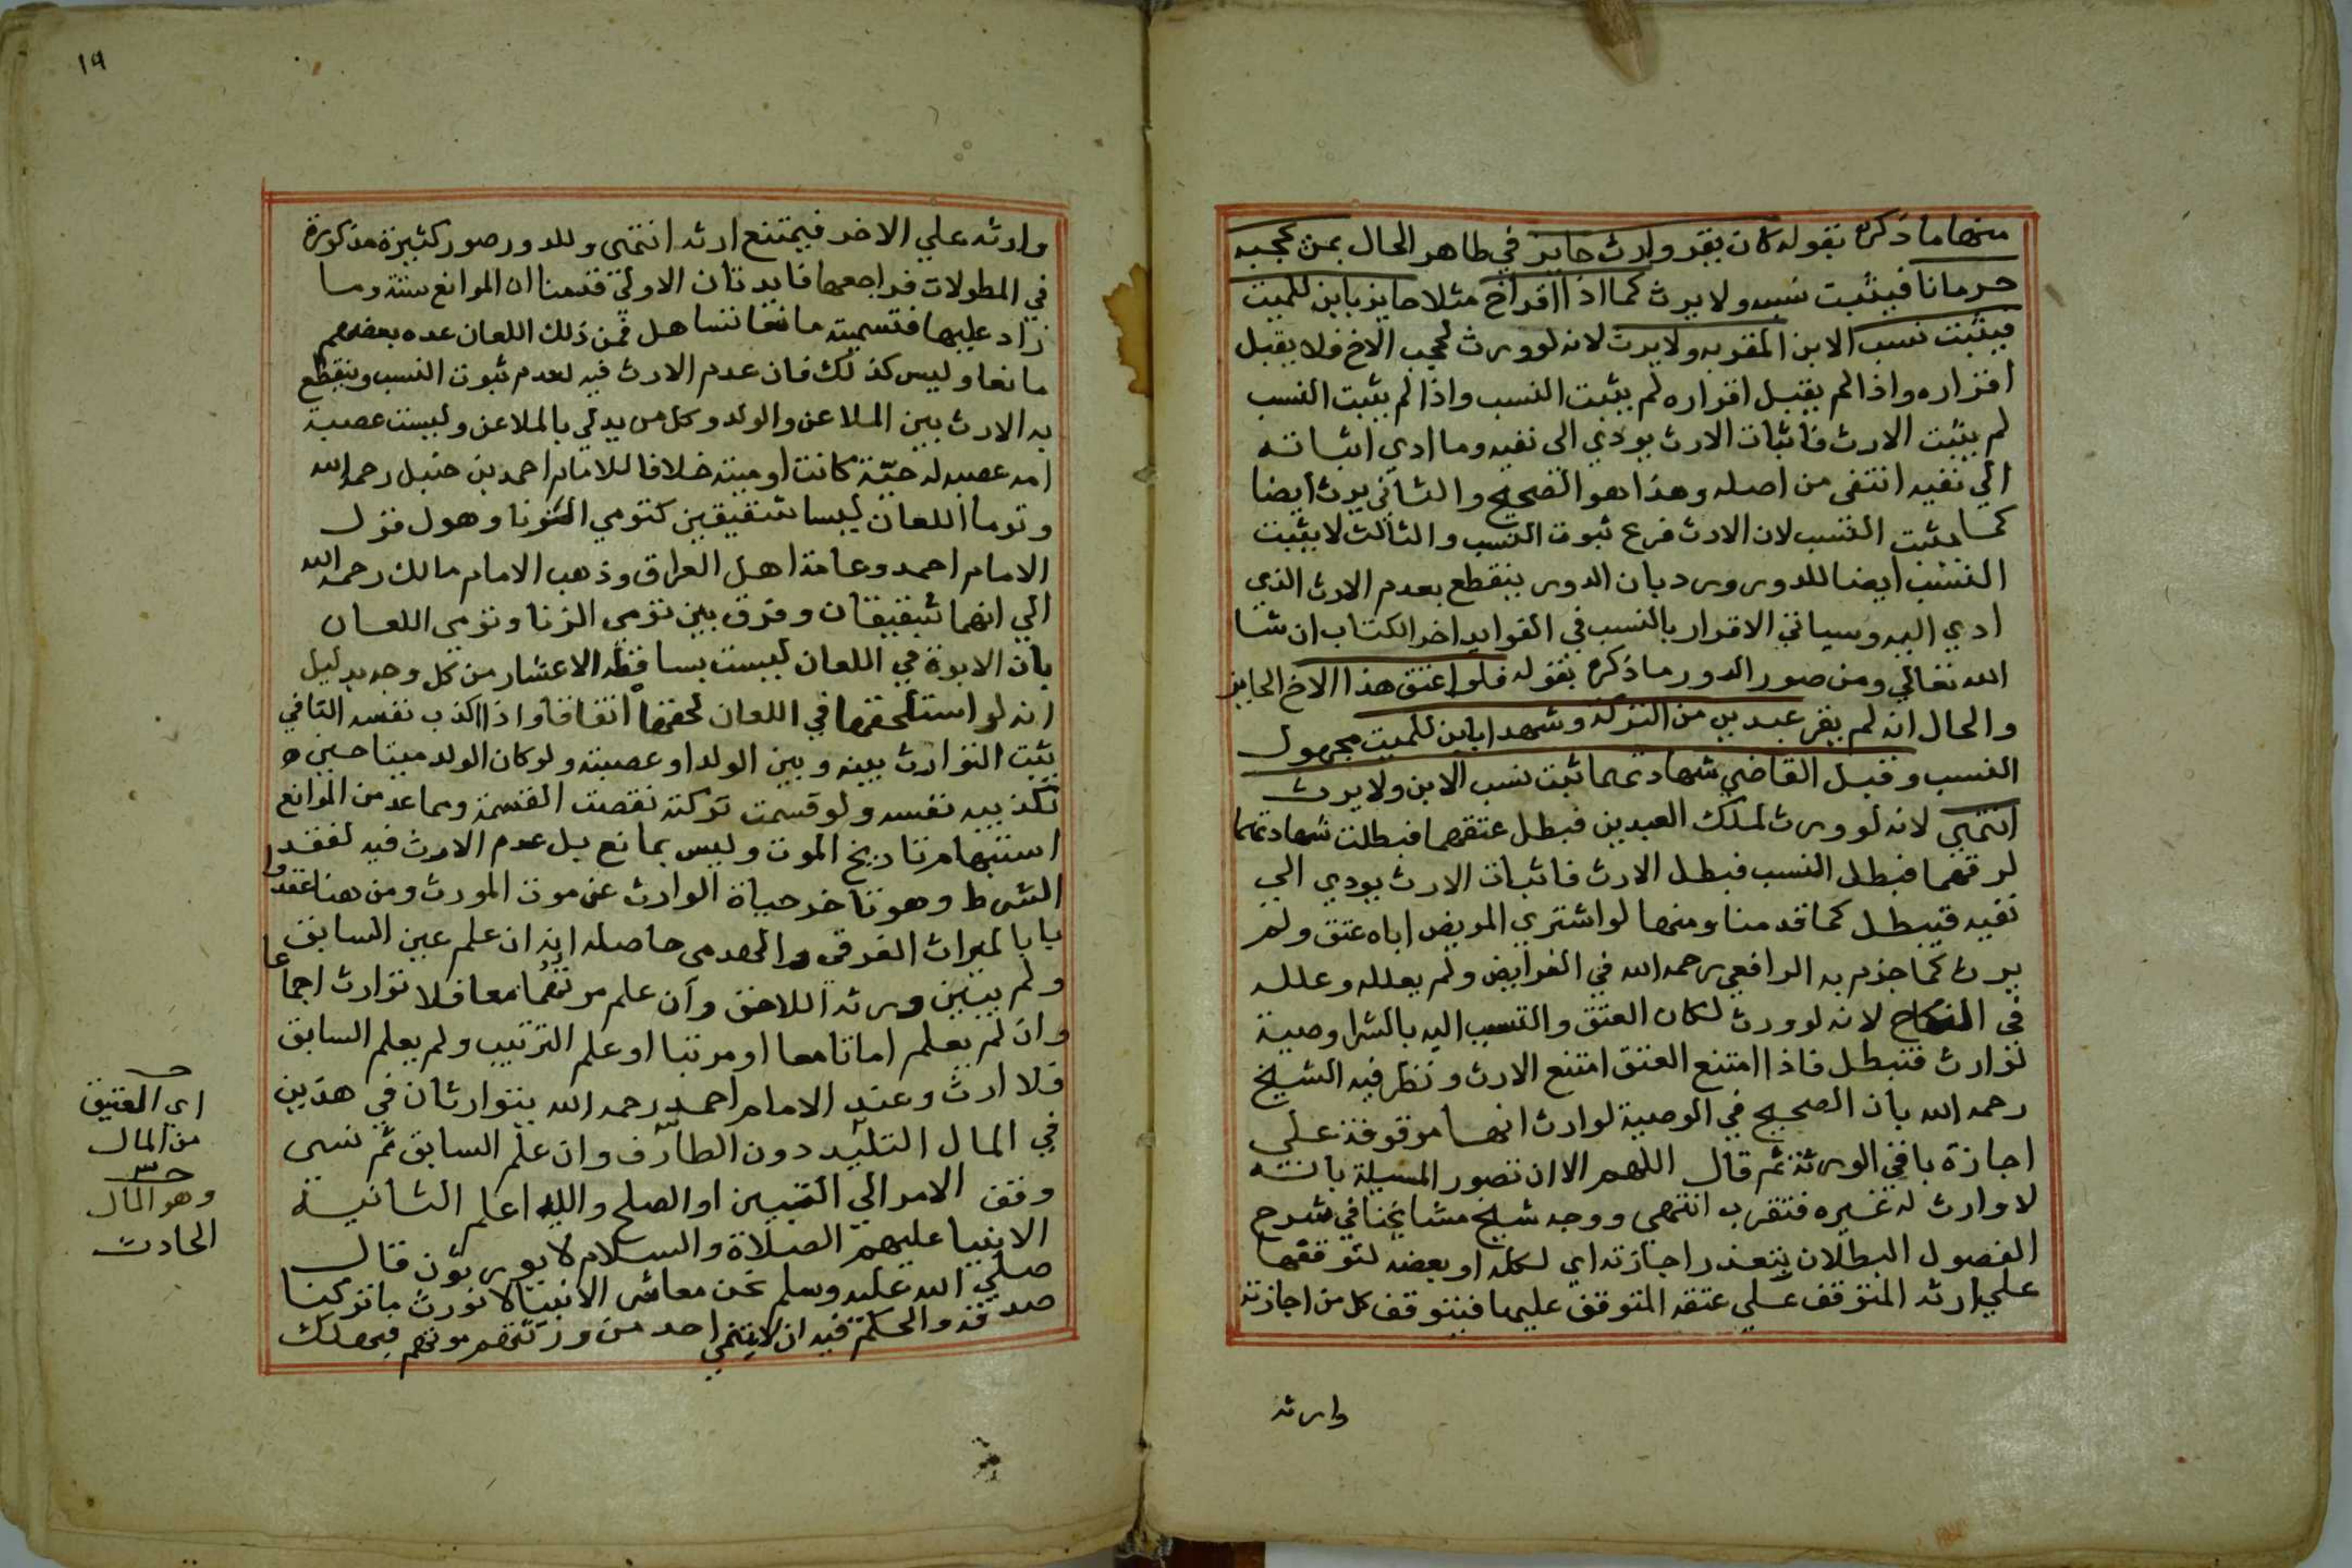 منها ما ذكره بقوله كان يقر وارث حايز في ظاهر الحال بمن يحجبه
حرمانا فيثبت نسبه ولا يرث كما اذا اقر اخ مثلا حايز بابن للميت
فيثبت نسب الابن المقر به ولا يرث لانه لو ورث لحجب الاخ فلا يقبل
اقراره واذا لم يقبل اقراره لم يثبت النسب واذا لم يثبت النسب
لم يثبت الارث فاثبات الارث يودي الى نفيه وما ادي اثباته
الي نفيه انتفى من اصله وهذا هو الصحيح والثاني يرث ايضا
كما يثبت النسب لان الارث فرع ثبوت النسب والثالث لا يثبت
النسب ايضا للدور ورد بان الدور ينقطع بعدم الارث الذي
ادي اليه وسياتي الاقرار بالنسب في الفوايد اخر الكتاب ان شا
الله تعالي ومن صور الدور ما ذكره بقوله فلو اعتق هذا الاخ الحايز
والحال انه لم يقر عبدين من التركة وشهدا بابن للميت مجهول
النسب وقبل القاضي شهادتهما ثبت نسب الابن ولا يرث
انتهي لانه لو ورث لملك العبدين فبطل عتقهما فبطلت شهادتهما
لرقهما فبطل النسب فبطل الارث فاثبات الارث يودي الي
نفيه فيبطل كما قدمنا ومنها لو اشتري المريض اباه عتق ولم
يرث كما جزم به الرافعي رحمه الله في الفرايض ولم يعلله وعلله
في النكاح لانه لو ورث لكان العتق والتسبب اليه بالشرا وصية
لوارث فتبطل فاذا امتنع العتق امتنع الارث ونظر فيه الشيخ
رحمه الله بان الصحيح في الوصية لوارث انها موقوفة علي
اجازة باقي الورثة ثم قال اللهم الا ان تصور المسيلة بانه
لا وارث له غيره فتقرب انتهي ووجه شيخ مشايخنا في شرح
الفصول البطلان بتعذر اجازته اي لكله او بعضه لتوقفها
علي ارثه المتوقف علي عتقه المتوقف عليها فيتوقف كل من اجازته
وارثه
١٩
وارثه علي الاخر فيمتنع ارثه انتهى وللدور صور كثيرة مذكورة
في المطولات فراجعها فايدتان الاولي قدمنا ان الموانع ستة وما
زاد عليها فتسميته مانعا تساهل فمن ذلك اللعان عده بعضهم
مانعا وليس كذلك فان عدم الارث فيه لعدم ثبوت النسب وينقطع
به الارث بين الملاعن والولد وكل من يدلي بالملاعن وليست عصبة
امه عصبه له حيّة كانت او ميتة خلافا للامام احمد بن حنبل رحمه الله
وتوما اللعان ليسا شقيقين كتومي الزنا وهول قول
الامام احمد وعامة اهل العراق وذهب الامام مالك رحمه الله
الي انهما شقيقان وفرق بين تومي الزنا وتومي اللعان
بان الابوة في اللعان ليست بساقطة الاعتبار من كل وجه بدليل
انه لو استلحقها في اللعان لحقها اتفاقا واذا اكذب نفسه النافي
يثبت التوارث بينه وبين الولد او عصبته ولو كان الولد ميتا حين
تكذيبه نفسه ولو قسمت تركته نقضت القسمة ومما عد من الموانع
استبهام تاريخ الموت وليس بمانع بل عدم الارث فيه لفقد
الشرط وهو تاخر حياة الوارث عن موت المورث ومن هنا عقدوا
بابا لميراث الغرقى والهدمى حاصله انه ان علم عين السابق
ولم يبين ورثه اللاحق وان علم موتهما معا فلا توارث اجماعا
وان لم يعلم اماتا معا او مرتبا او علم الترتيب ولم يعلم السابق
فلا ارث وعند الامام احمد رحمه الله يتوارثان في هذين
في المال التليد دون الطارف وان علم السابق ثم نسى
وقف الامر الي التبيين او الصلح والله اعلم الثانية
الانبيا عليهم الصلاة والسلام لا يورثون قال
صلي الله عليه وسلم نحن معاشر الانبيا لا نورث ما تركنا
صدقة والحكمة فيه ان لا يتمني احد من ورثتهم موتهم فيهلك
اي العتيق
من المال
وهو المال
الحادث